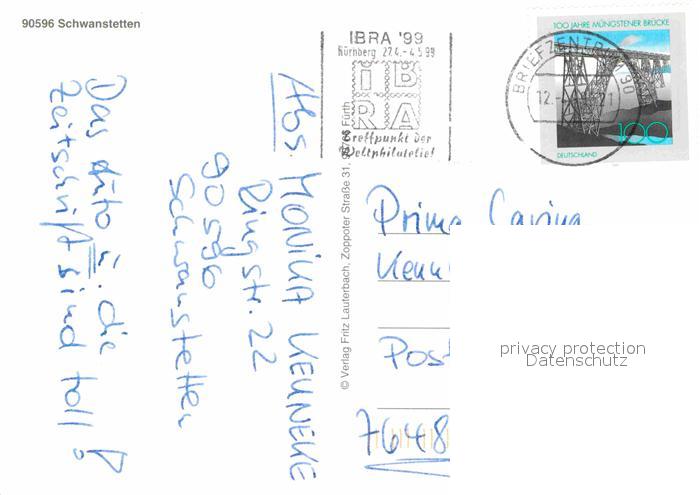 90596 Schwanstetten
IBRA '99
Nürnberg 27.4.-4.5.99
IB
RA
Treffpunkt der
Weltphilatelie!
BRIEFZENTRUM 90
12.
100 JAHRE MÜNGSTENER BRÜCKE
100
DEUTSCHLAND
© Verlag Fritz Lauterbach, Zoppoter Straße 31, Fürth
Abs. MONIKA
Ringstr. 22
90596
Schwanstetten
Das u. die
Zeitschrift sind toll!
Prima
Kenn
Post
7648
privacy protection
Datenschutz